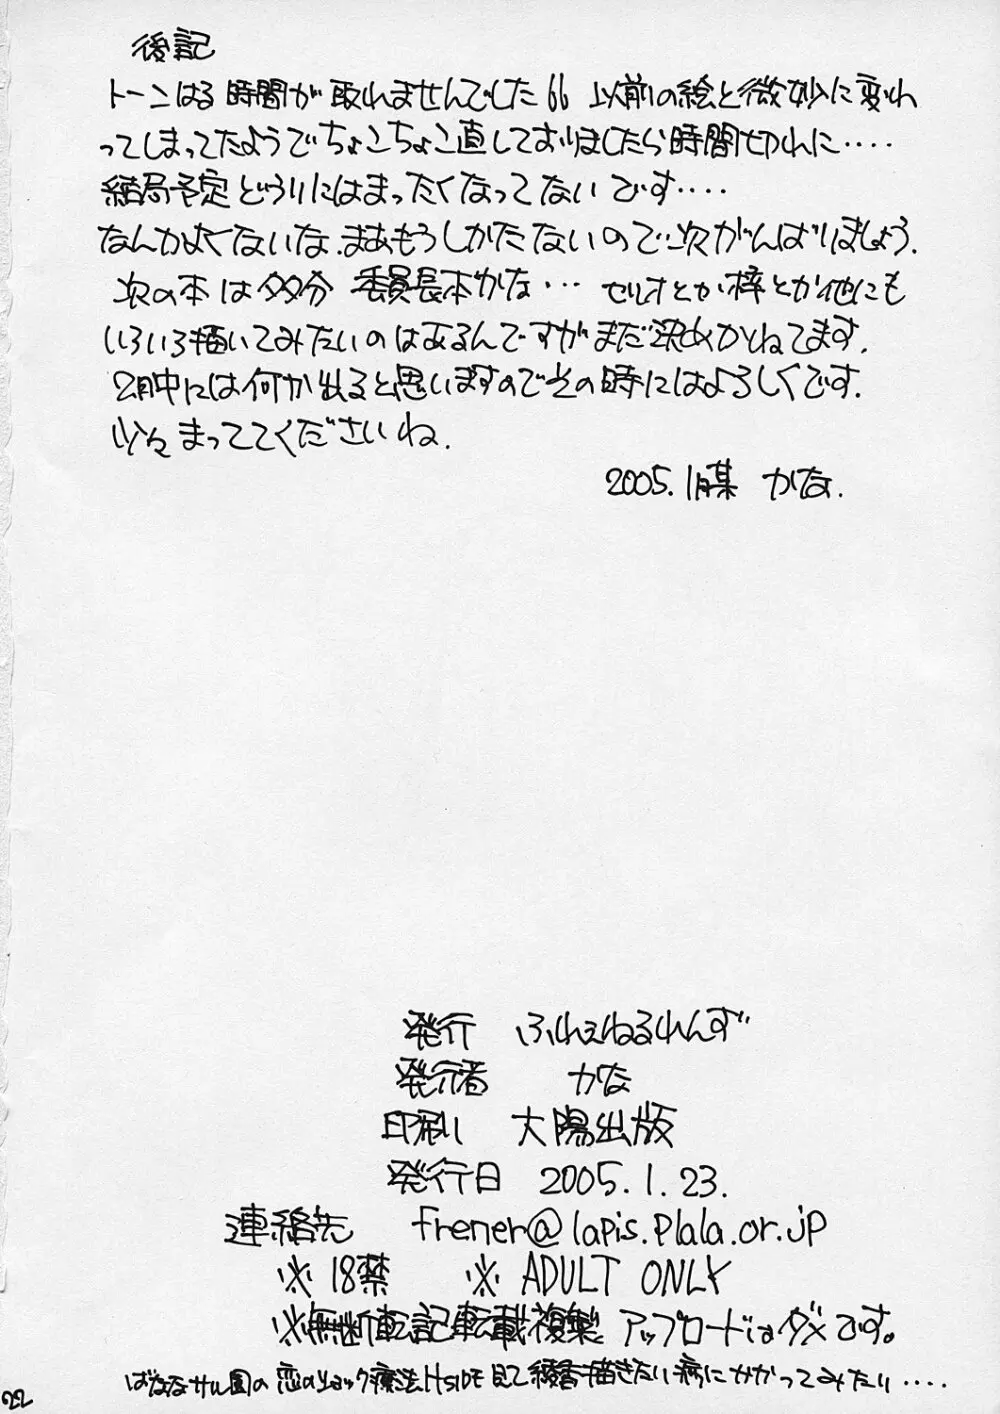 後記
トーンはる時間が取れませんでした 以前の絵と微妙に変わ
ってしまってたようでちょこちょこ直しておりましたら時間切れに・・・・
結局予定どうりにはまったくなってないです・・・・
なんかよくないな.まあもうしかたないので次がんばりましょう.
次の本は多分 委員長本かな・・・ セリオとか梓とか他にも
いろいろ描いてみたいのはあるんですがまだ決めかねてます.
2月中には何か出ると思いますのでその時にはよろしくです.
少々まっててくださいね.
2005.1月某 かな.
発行 ふれぇねるれんず
発行者 かな
印刷 大陽出版
発行日 2005.1.23.
連絡先 frener@lapis.plala.or.jp
※18禁 ※ADULT ONLY
※無断転記転載複製 アップロードはダメです。
ばななサル園の恋のショック療法Hsideを見て綾香描きたい病にかかってみたり・・・・
22